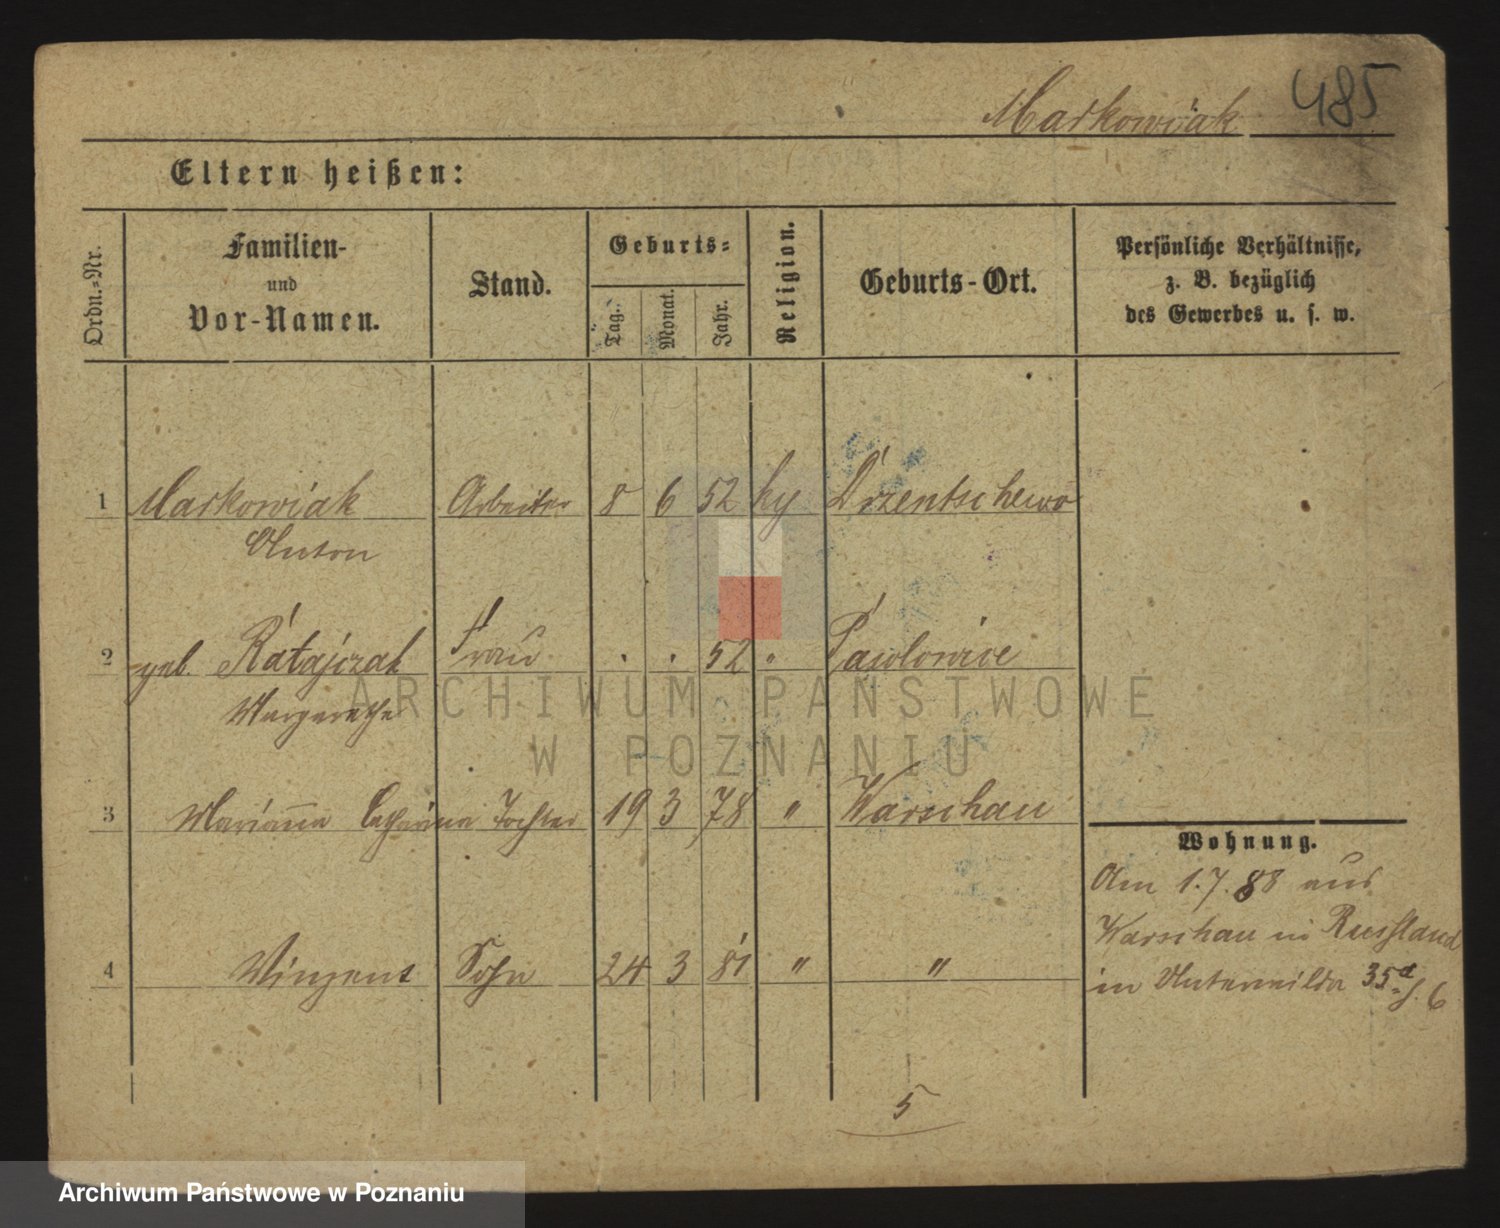 Markowiak 485
Eltern heißen:
Ordn.-Nr.
Familien-
und
Vor-Namen.
Stand.
Geburts-
Tag.
Monat.
Jahr.
Religion.
Geburts-Ort.
Persönliche Verhältnisse,
z. B. bezüglich
des Gewerbes u. s. w.
1 Markowiak Arbeiter 8 6 52 ky Drzentschewo
Anton
2 geb. Ratajczak Frau . . 52 " Pawlowice
Margarethe
3 Marianna Catharina Tochter 19 3 78 " Warschau
4 Vinzent Sohn 24 3 81 " "
Wohnung.
Am 1.7.88 aus
Warschau in Russland
in Unterwilda 35a f. 6
5
ARCHIWUM PAŃSTWOWE
W POZNANIU
Archiwum Państwowe w Poznaniu